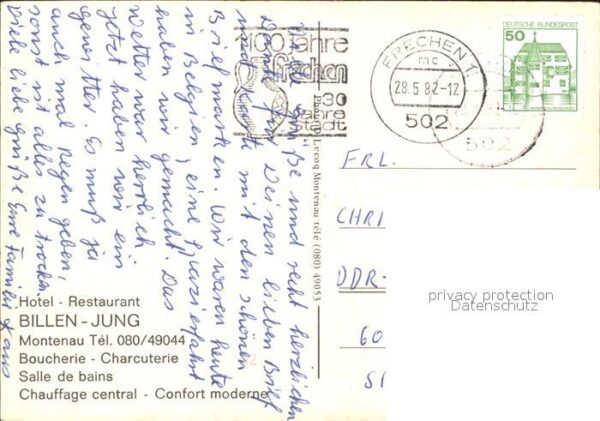 Viele Grüße und recht herzlichen
Dank für Deinen lieben Brief
und Karte mit den schönen
Briefmarken. Wir waren heute
in Belgien, eine Spazierfahrt
haben wir gemacht. Das
Wetter war herrlich
jetzt haben wir ein
gewitter. Es muß ja
auch mal Regen geben,
sonst ist alles zu trocken
Viele liebe grüße Eure Familie
100 Jahre
frechen
30
Jahre
Stadt
FRECHEN 1
mc
28.5.82-12
502
502
DEUTSCHE BUNDESPOST
50
Lecocq Montenau télé (080) 49053
FRL.
CHRI
DDR-
60
Hotel - Restaurant
BILLEN - JUNG
Montenau Tél. 080/49044
Boucherie - Charcuterie
Salle de bains
Chauffage central - Confort moderne
privacy protection
Datenschutz